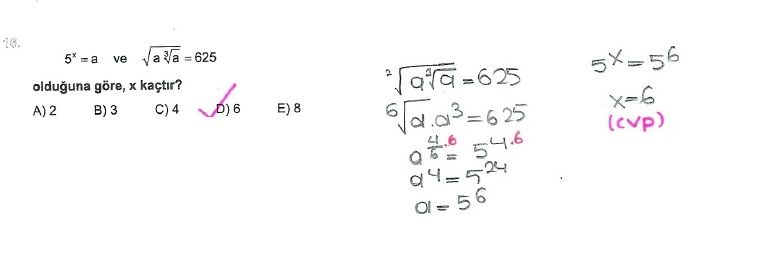 16.
5ˣ = a ve √(a ∛a) = 625
olduğuna göre, x kaçtır?
A) 2 B) 3 C) 4 D) 6 E) 8
²√(a ³√a) = 625
⁶√(a.a³) = 625
a^(4/6 .6) = 5^(4 .6)
a⁴ = 5²⁴
a = 5⁶
5ˣ = 5⁶
x = 6
(cvp)